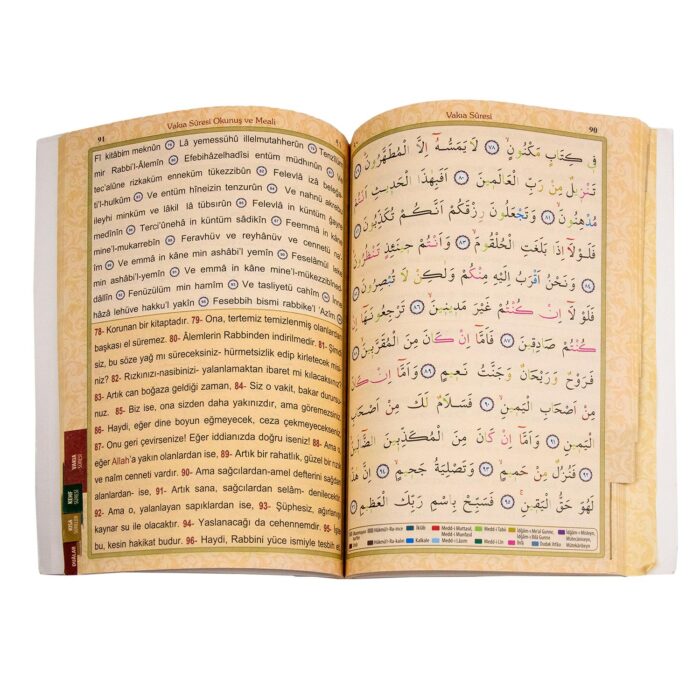 Vakıa Sûresi
90
فِي كِتَابٍ مَكْنُونٍ ﴿٧٨﴾ لَا يَمَسُّهُ إِلَّا الْمُطَهَّرُونَ ﴿٧٩﴾
تَنْزِيلٌ مِنْ رَبِّ الْعَالَمِينَ ﴿٨٠﴾ أَفَبِهٰذَا الْحَدِيثِ أَنْتُمْ
مُدْهِنُونَ ﴿٨١﴾ وَتَجْعَلُونَ رِزْقَكُمْ أَنَّكُمْ تُكَذِّبُونَ ﴿٨٢﴾
فَلَوْلَا إِذَا بَلَغَتِ الْحُلْقُومَ ﴿٨٣﴾ وَأَنْتُمْ حِينَئِذٍ تَنْظُرُونَ
﴿٨٤﴾ وَنَحْنُ أَقْرَبُ إِلَيْهِ مِنْكُمْ وَلٰكِنْ لَا تُبْصِرُونَ ﴿٨٥﴾
فَلَوْلَا إِنْ كُنْتُمْ غَيْرَ مَدِينِينَ ﴿٨٦﴾ تَرْجِعُونَهَا إِنْ
كُنْتُمْ صَادِقِينَ ﴿٨٧﴾ فَأَمَّا إِنْ كَانَ مِنَ الْمُقَرَّبِينَ ﴿٨٨﴾
فَرَوْحٌ وَرَيْحَانٌ وَجَنَّتُ نَعِيمٍ ﴿٨٩﴾ وَأَمَّا إِنْ كَانَ
مِنْ أَصْحَابِ الْيَمِينِ ﴿٩٠﴾ فَسَلَامٌ لَكَ مِنْ أَصْحَابِ
الْيَمِينِ ﴿٩١﴾ وَأَمَّا إِنْ كَانَ مِنَ الْمُكَذِّبِينَ الضَّالِّينَ
﴿٩٢﴾ فَنُزُلٌ مِنْ حَمِيمٍ ﴿٩٣﴾ وَتَصْلِيَةُ جَحِيمٍ ﴿٩٤﴾ إِنَّ هٰذَا
لَهُوَ حَقُّ الْيَقِينِ ﴿٩٥﴾ فَسَبِّحْ بِاسْمِ رَبِّكَ الْعَظِيمِ ﴿٩٦﴾
91
Vakıa Sûresi Okunuş ve Meali
Fî kitâbim meknûn 78 Lâ yemessühû illelmutahherûn 79 Tenzîlüm
mir Rabbi'l-Âlemîn 80 Efebihâzelhadîsi entüm müdhinûn 81 Ve
tec'alûne rizkaküm enneküm tükezzibûn 82 Felevlâ izâ belegâ
ti'l-hulkûm 83 Ve entüm hîneizin tenzurûn 84 Ve nahnü akrebü
ileyhi minküm ve lâkil lâ tübsırûn 85 Felevlâ in küntüm ğayra
medînîn 86 Terci'ûnehâ in küntüm sâdikîn 87 Feemmâ in kâne
mine'l-mukarrebîn 88 Feravhüv ve reyhânüv ve cennetü na
îm 89 Ve emmâ in kâne min ashâbi'l yemîn 90 Feselâmül leke
min ashâbi'l-yemîn 91 Ve emmâ in kâne mine'l-mükezzibîned
dâllîn 92 Fenüzülüm min hamîm 93 Ve tasliyetü cahîm 94 İnne
hâzâ lehüve hakku'l yakîn 95 Fesebbih bismi rabbike'l 'Azîm 96
78- Korunan bir kitaptadır. 79- Ona, tertemiz temizlenmiş olanlardan
başkası el süremez. 80- Âlemlerin Rabbinden indirilmedir. 81- Şimdi
siz, bu söze yağ mı süreceksiniz- hürmetsizlik edip kirletecek misi-
niz? 82- Rızkınızı-nasibinizi- yalanlamaktan ibaret mi kılacaksınız?
83- Artık can boğaza geldiği zaman, 84- Siz o vakit, bakar durursu-
nuz. 85- Biz ise, ona sizden daha yakınızdır, ama göremezsiniz.
86- Haydi, eğer dine boyun eğmeyecek, ceza çekmeyecekseniz
87- Onu geri çevirsenize! Eğer iddianızda doğru iseniz! 88- Ama o,
eğer Allah'a yakın olanlardan ise, 89- Artık bir rahatlık, güzel bir rızık
ve naîm cenneti vardır. 90- Ama sağcılardan-amel defterini sağdan
alanlardan- ise, 91- Artık sana, sağcılardan selâm- denilecektir.
92- Ama o, yalanlayan sapıklardan ise, 93- Şüphesiz, ağırlanışı
kaynar su ile olacaktır. 94- Yaslanacağı da cehennemdir. 95- İşte
bu, kesin hakikat budur. 96- Haydi, Rabbini yüce ismiyle tesbih et.
VAKIA
SÛRESİ
KEHF
SÛRESİ
KISA
SÛRELER
DUÂLAR